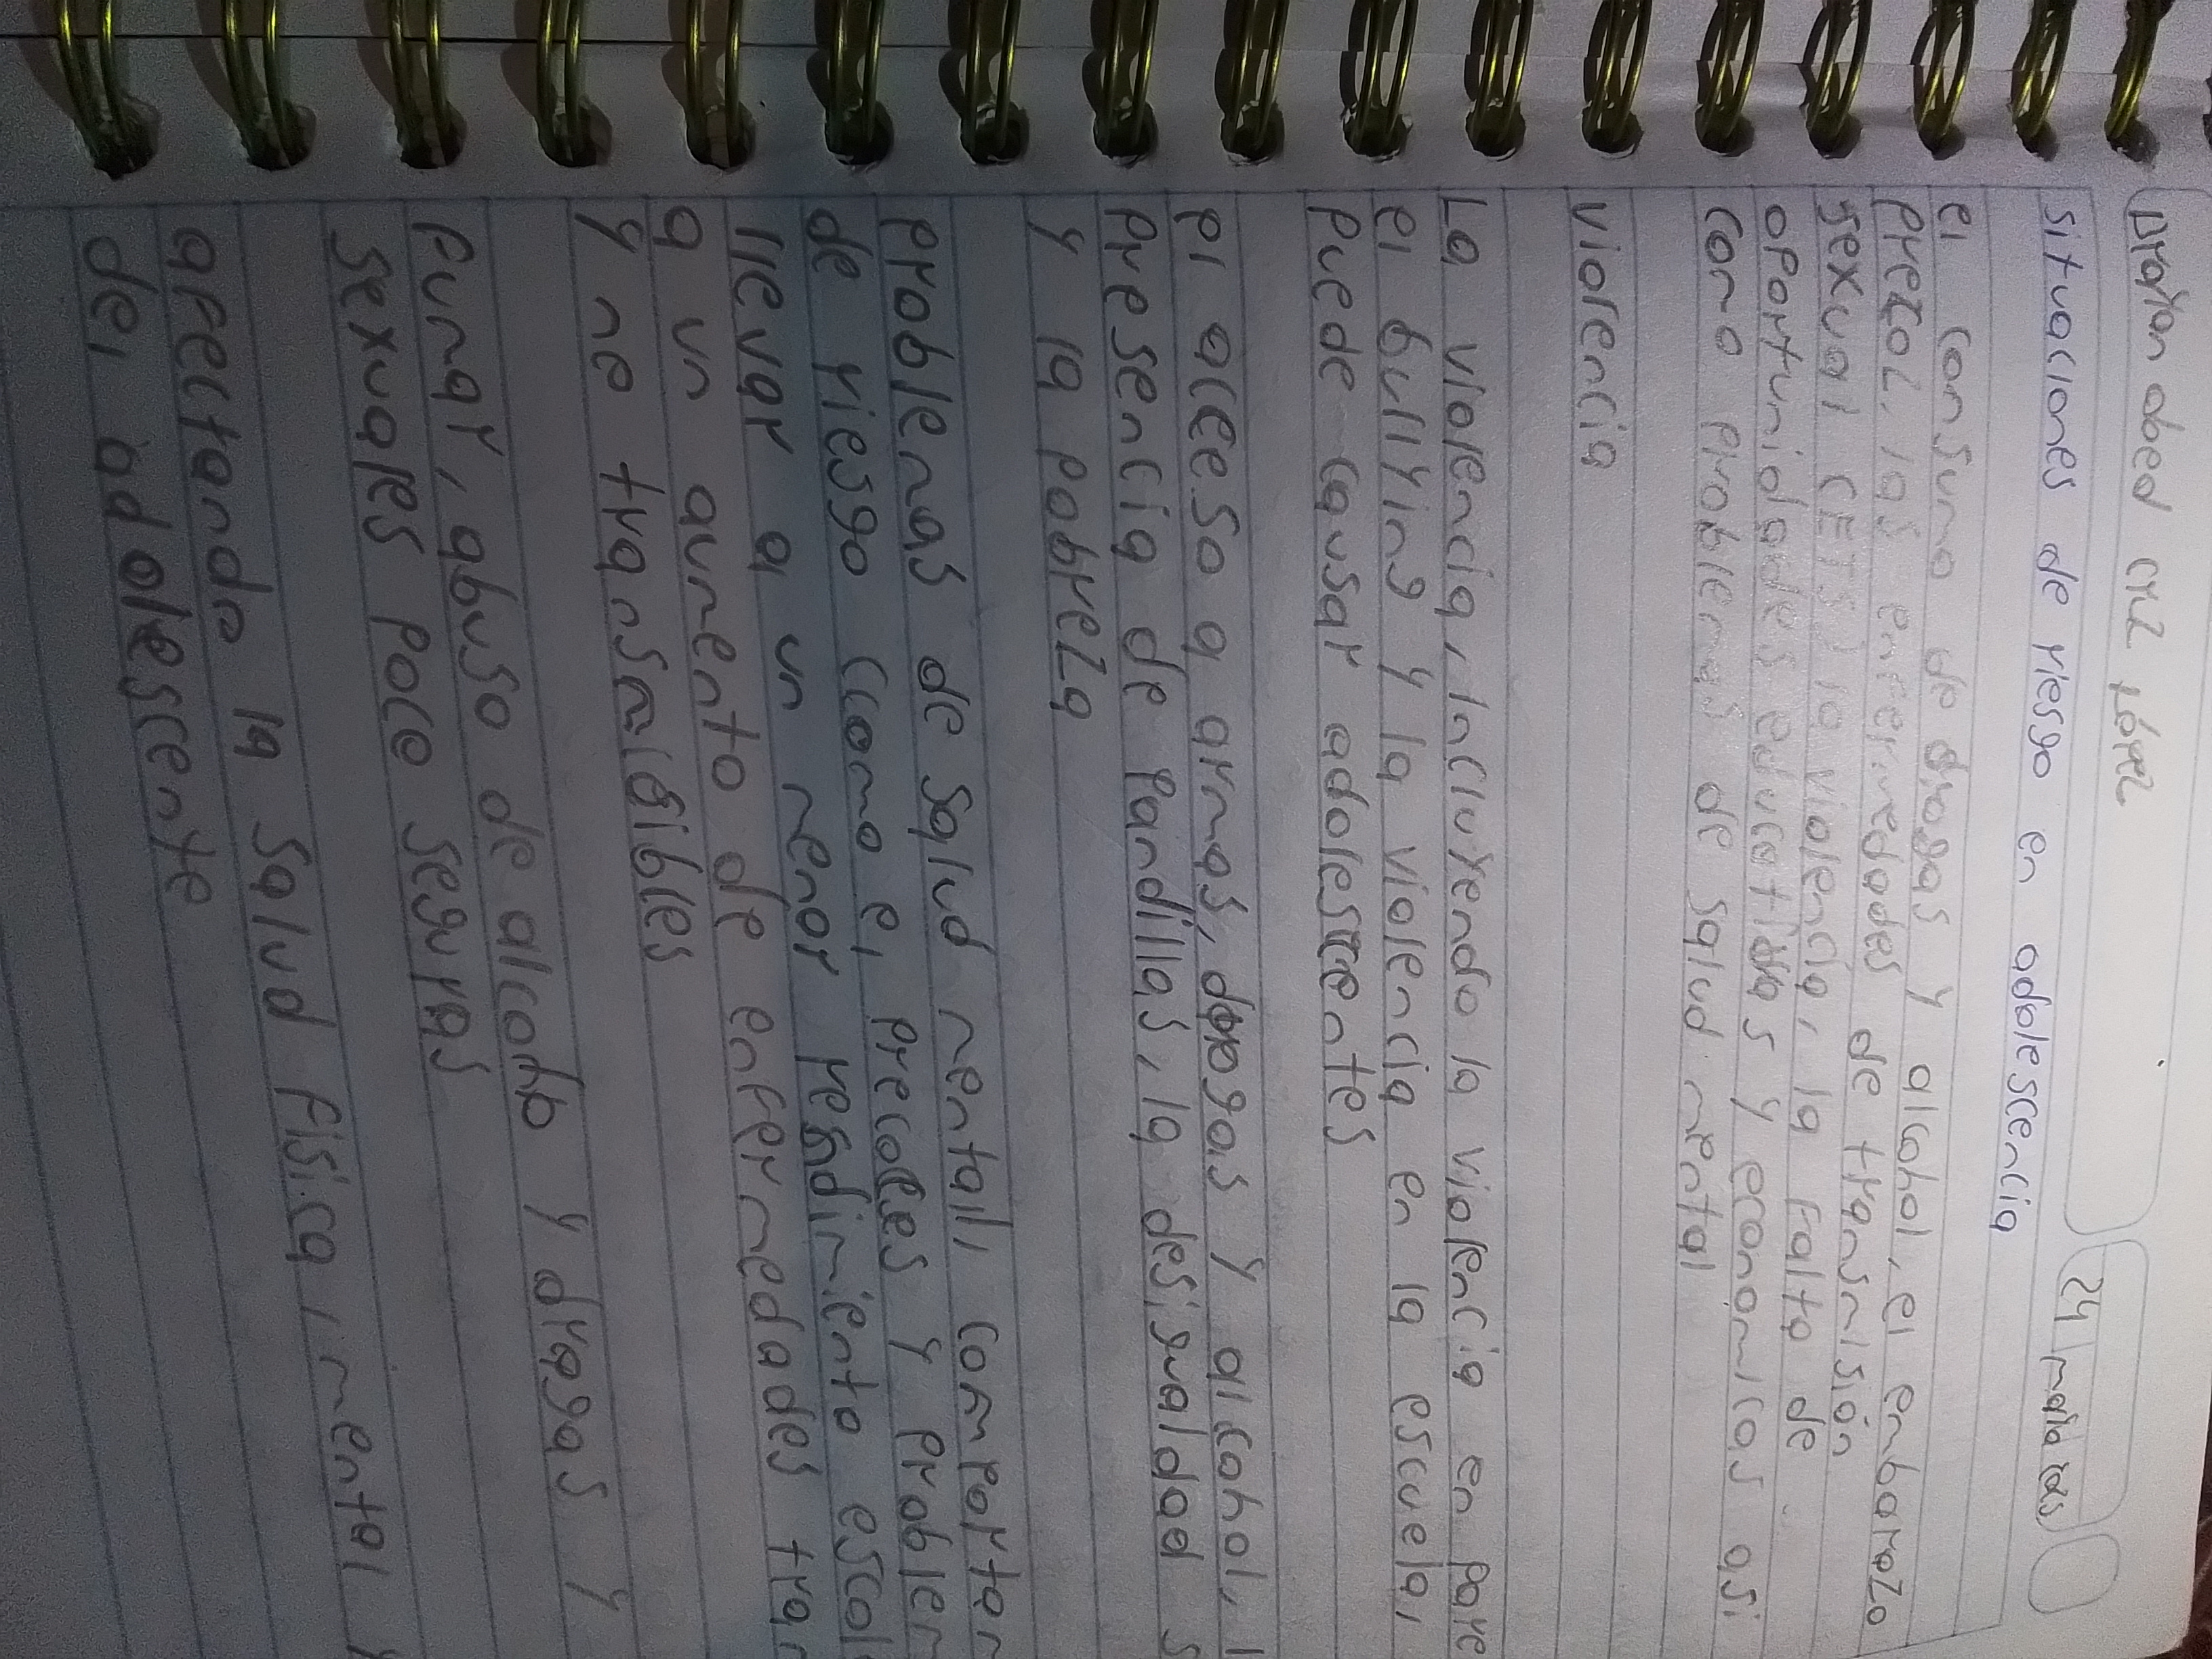 Brayan obed cruz López
24 marzo
situaciones de riesgo en adolescencia
el consumo de drogas y alcohol, el embarazo
precoz. las enfermedades de transmisión
sexual (ETS) la violencia, la falta de
oportunidades educativas y economicas asi
como problemas de salud mental
violencia
La violencia, incluyendo la violencia en pare
el bullying y la violencia en la escuela,
puede causar adolescentes
el acceso a armas, drogas y alcohol, l
presencia de pandillas, la desigualdad s
y la pobreza
problemas de salud mental, comportam
de riesgo (como el precoces y problem
llevar a un menor rendimiento escol
a un aumento de enfermedades tran
y ne transmisibles
fumar, abuso de alcohol y drogas y
sexuales poco seguras
afectando la salud física, mental y
del adolescente